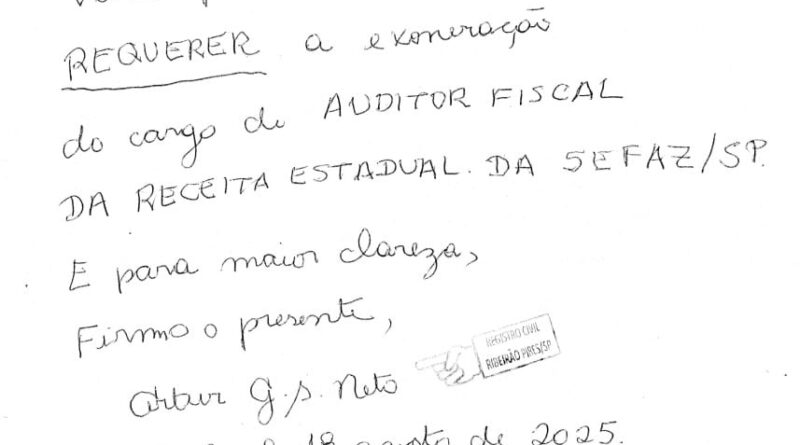 REQUERER a exoneração
do cargo de AUDITOR FISCAL
DA RECEITA ESTADUAL. DA SEFAZ/SP.
E para maior clareza,
Firmo o presente,
REGISTRO CIVIL
RIBEIRÃO PIRES/SP
Artur G. S. Neto
18 agosto de 2025.